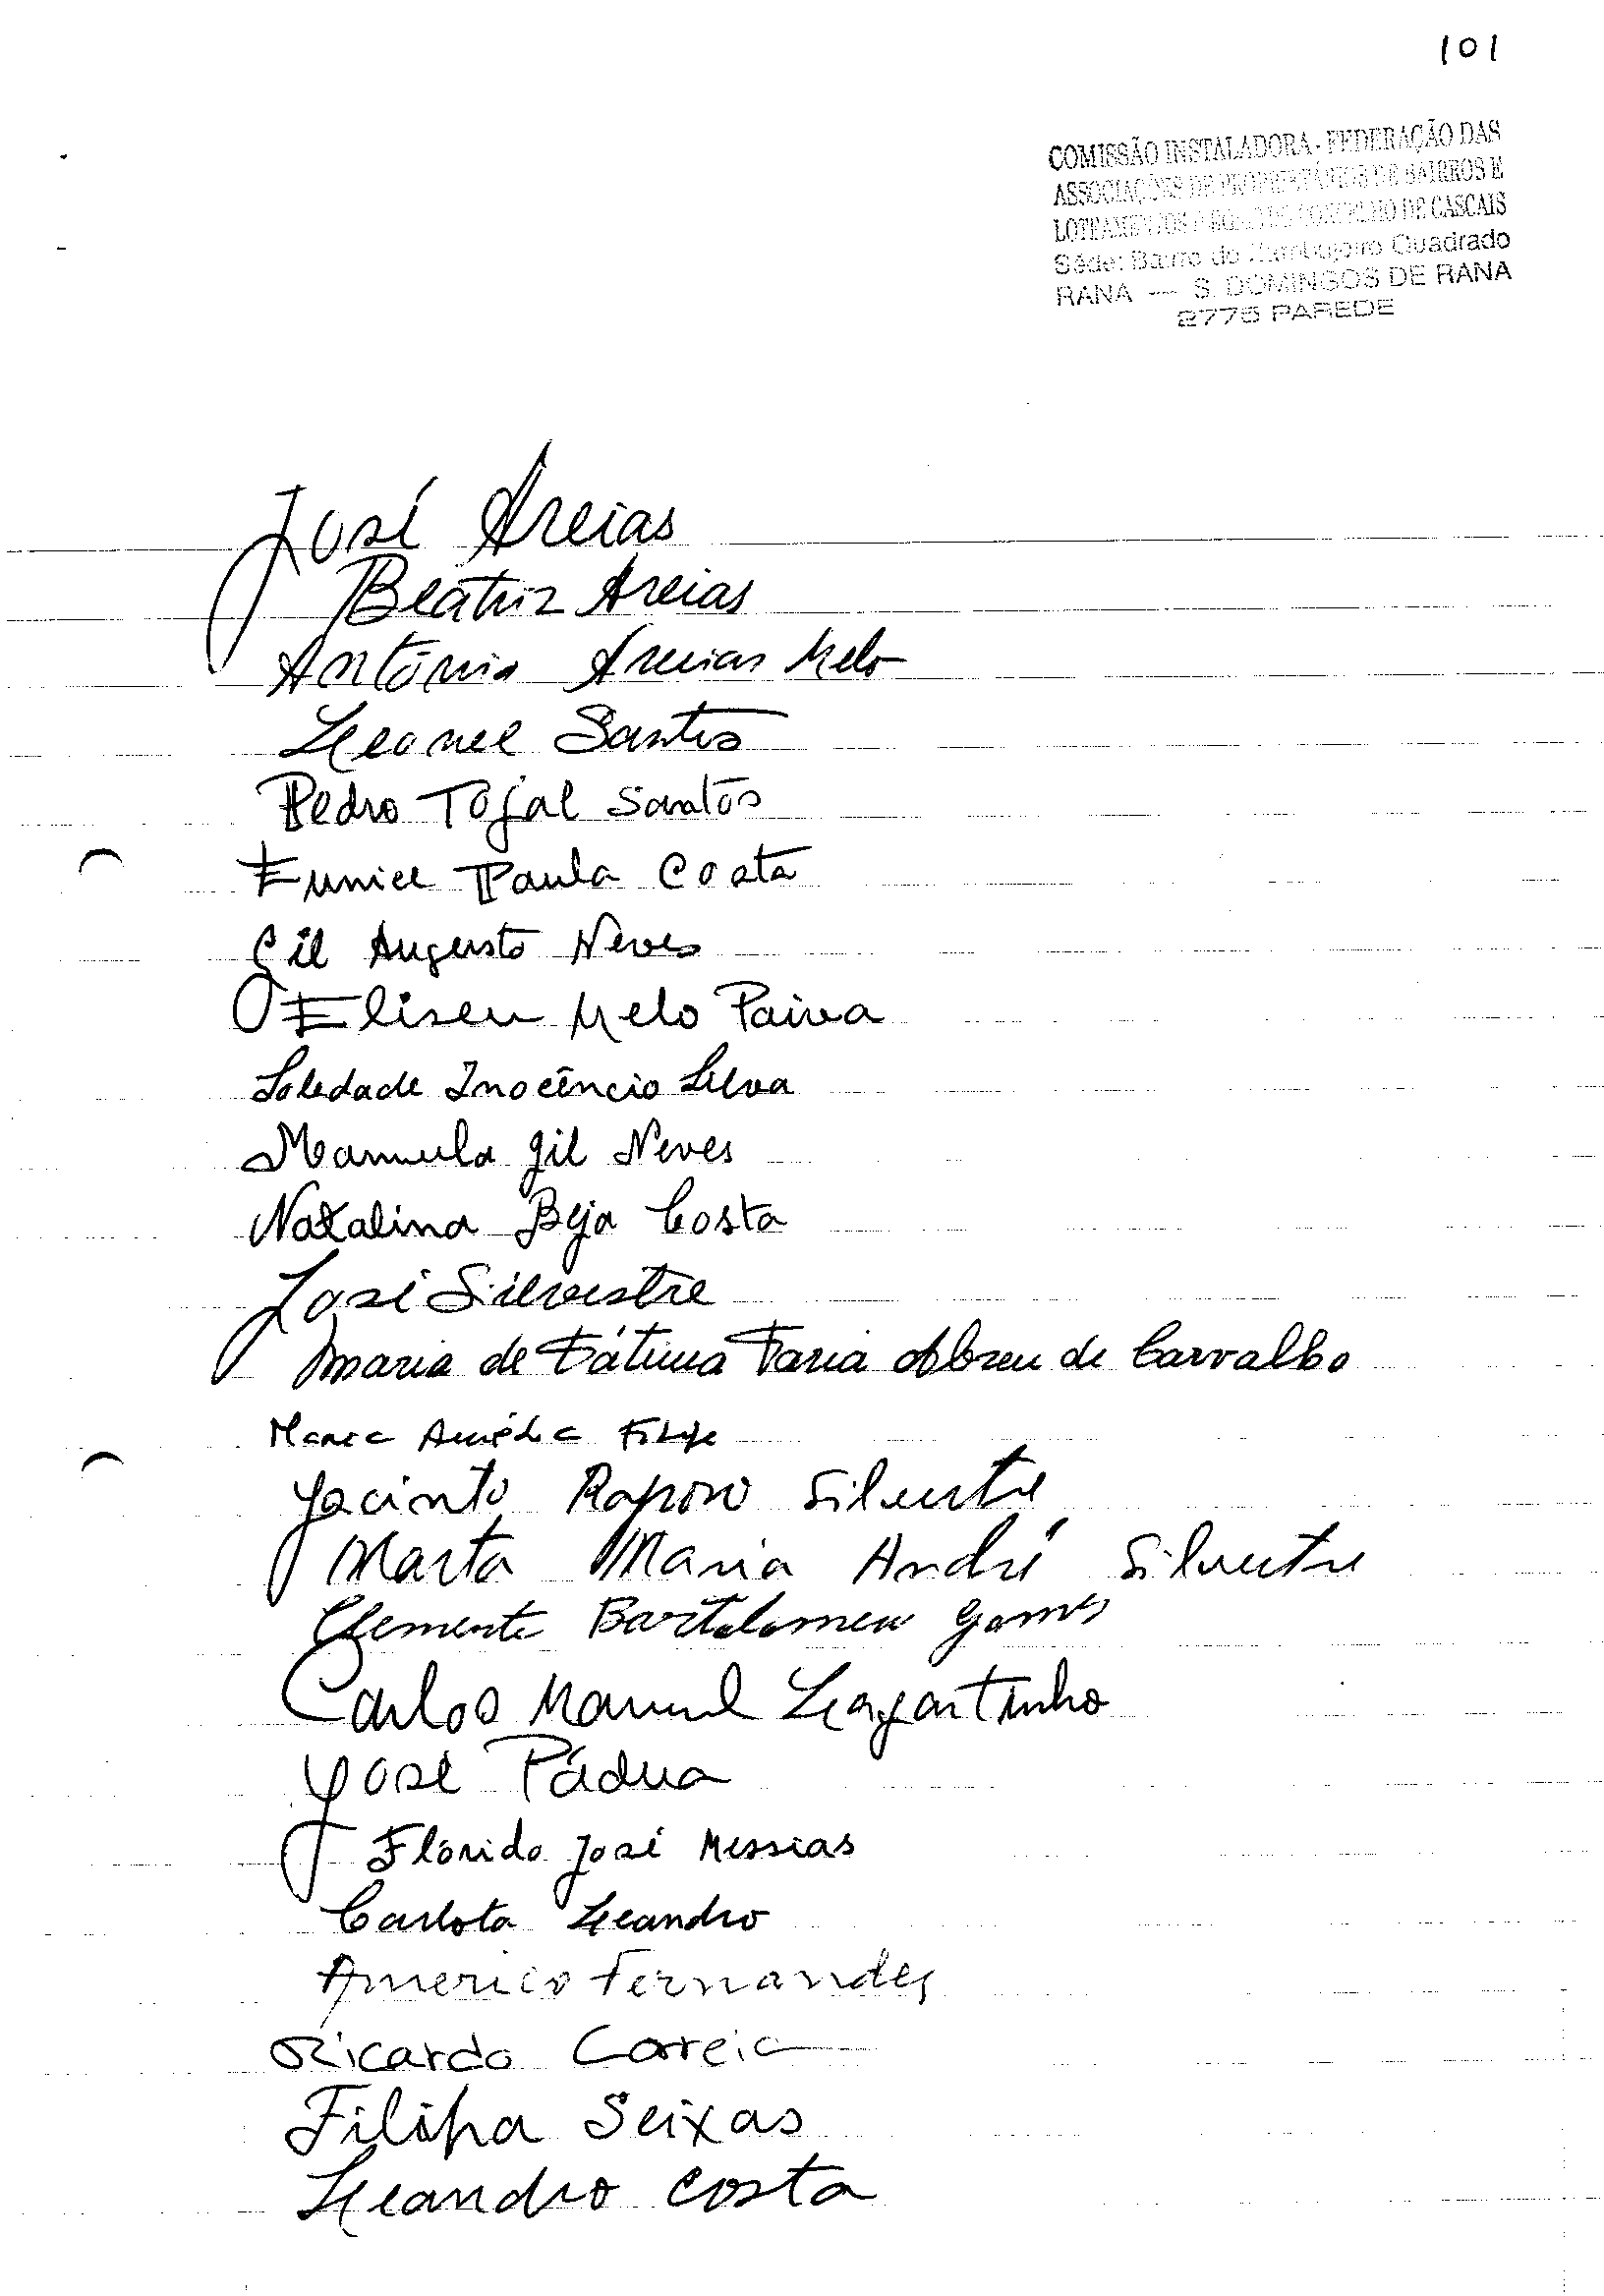 101
COMISSÃO INSTALADORA - FEDERAÇÃO DAS
ASSOCIAÇÕES DE PROPRIETÁRIOS DE BAIRROS E
LOTEAMENTOS CONCELHO DE CASCAIS
Séde: Bairro do Zambujeiro Quadrado
RANA — S. DOMINGOS DE RANA
2775 PAREDE
José Areias
Beatriz Areias
António Areias Melo
Leonel Santos
Pedro Tojal Santos
Eunice Paula Costa
Gil Augusto Neves
Eliseu Melo Paiva
Soledade Inocêncio Silva
Manuela Gil Neves
Natalina Beja Costa
José Silvestre
Maria de Fátima Faria Abreu de Carvalho
Maria Amélia Filipe
Jacinto Raposo Silvestre
Marta Maria André Silvestre
Clemente Bartolomeu Gomes
Carlos Manuel Lagartinho
José Pádua
Flórido José Messias
Carlota Leandro
Americo Fernandes
Ricardo Correia
Filipa Seixas
Leandro Costa